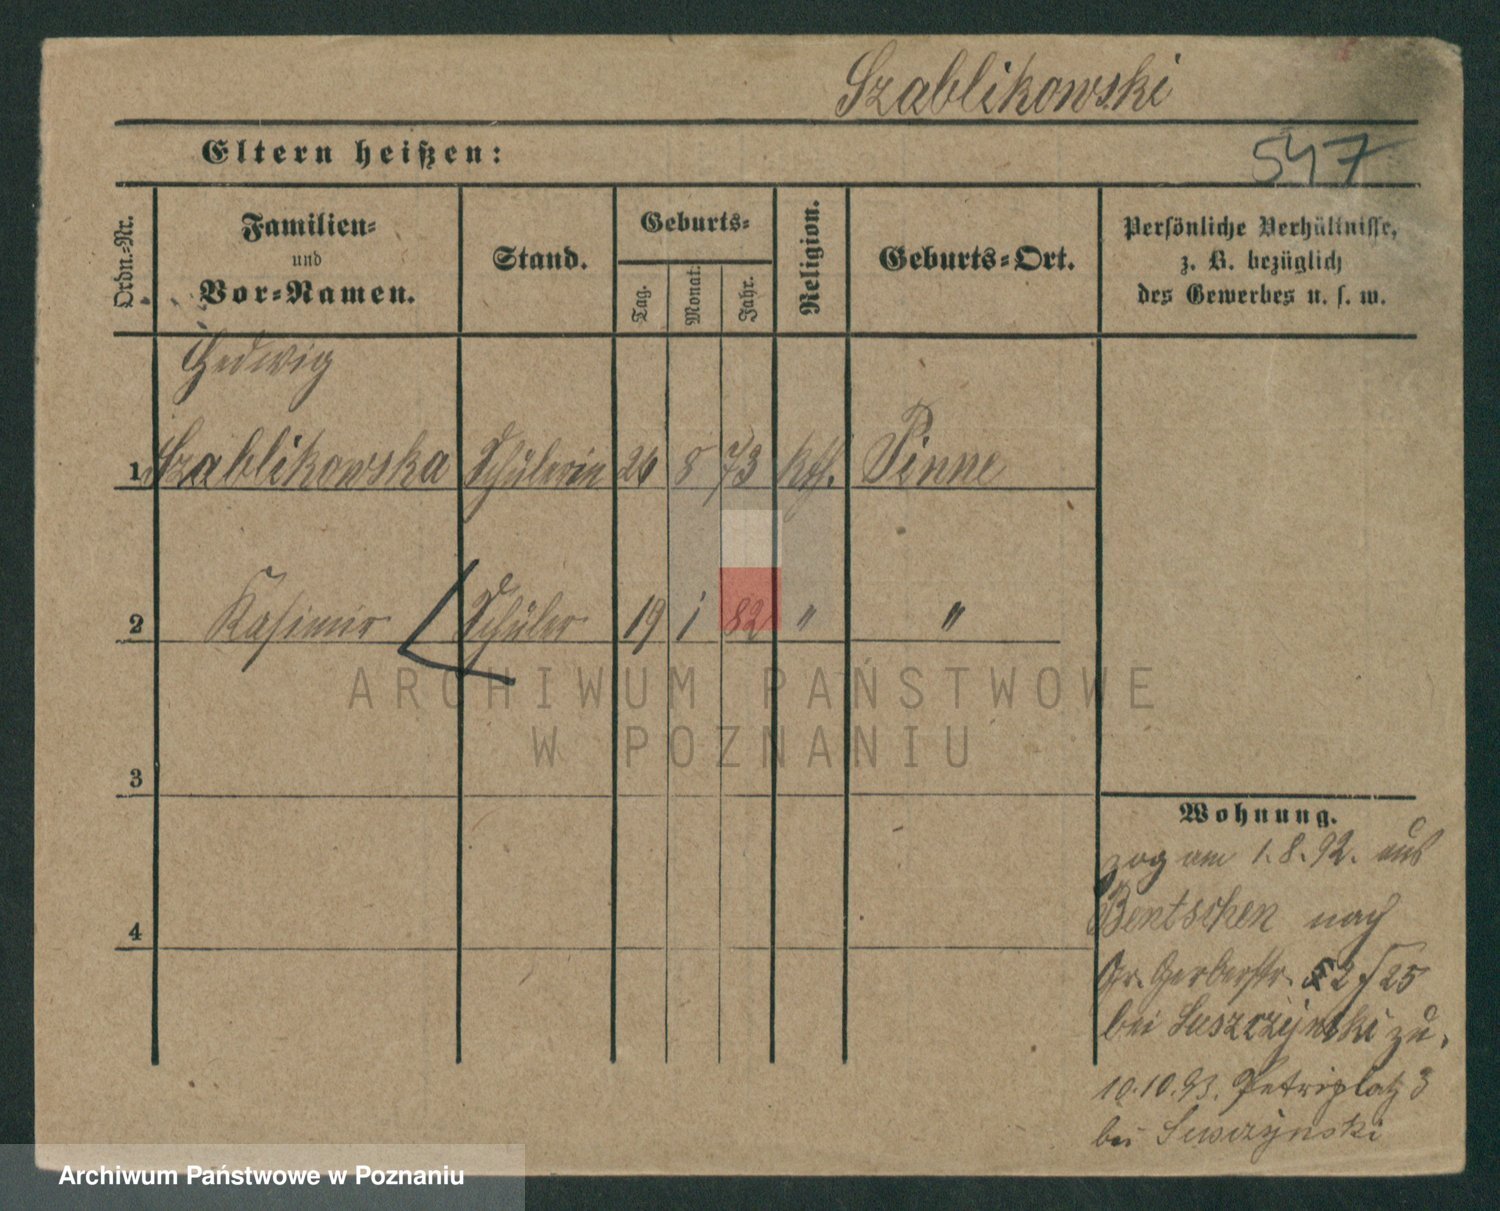 Szablikowski
547
Eltern heißen:
Ordn.-Nr.
Familien-
und
Vor-Namen.
Stand.
Geburts-
Tag.
Monat.
Jahr.
Religion.
Geburts-Ort.
Persönliche Verhältnisse,
z. B. bezüglich
des Gewerbes u. s. w.
Hedwig
1 Szablikowska Schülerin 26 8 73 kth. Pinne
2 Kasimir Schüler 19 1 82 " "
3
4
Wohnung.
zog am 1.8.92. aus
Bentschen nach
Gr. Gerberstr. 25
bei zu.
10.10.93. Petriplatz 3
bei
ARCHIWUM PAŃSTWOWE
W POZNANIU
Archiwum Państwowe w Poznaniu